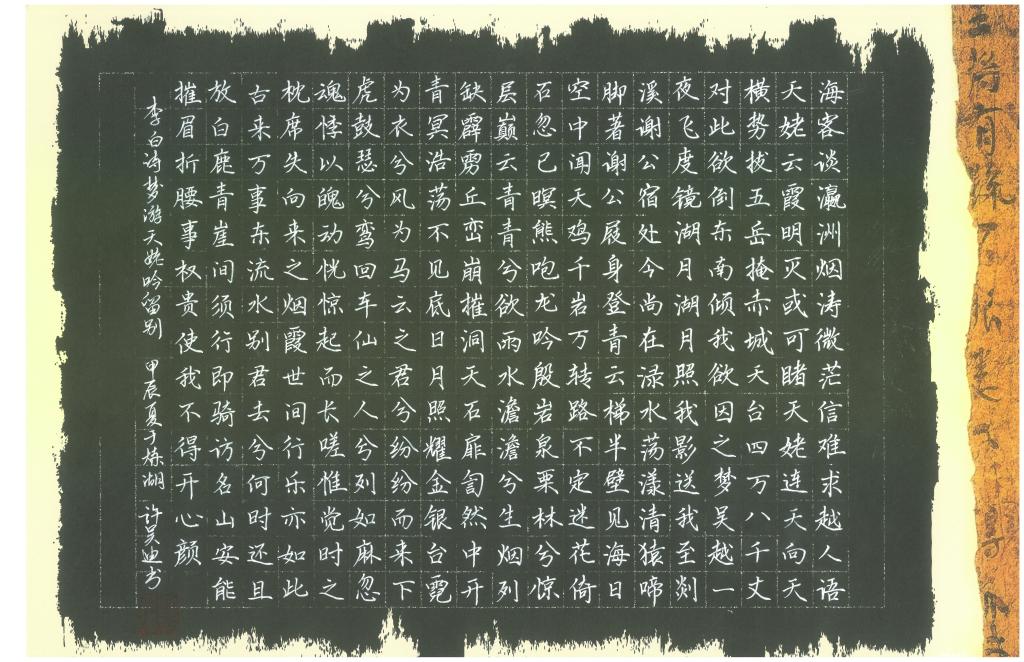 海客谈瀛洲烟涛微茫信难求越人语
天姥云霞明灭或可睹天姥连天向天
横势拔五岳掩赤城天台四万八千丈
对此欲倒东南倾我欲因之梦吴越一
夜飞度镜湖月湖月照我影送我至剡
溪谢公宿处今尚在渌水荡漾清猿啼
脚著谢公屐身登青云梯半壁见海日
空中闻天鸡千岩万转路不定迷花倚
石忽已暝熊咆龙吟殷岩泉栗林兮惊
层巅云青青兮欲雨水澹澹兮生烟列
缺霹雳丘峦崩摧洞天石扉訇然中开
青冥浩荡不见底日月照耀金银台霓
为衣兮风为马云之君兮纷纷而来下
虎鼓瑟兮鸾回车仙之人兮列如麻忽
魂悸以魄动恍惊起而长嗟惟觉时之
枕席失向来之烟霞世间行乐亦如此
古来万事东流水别君去兮何时还且
放白鹿青崖间须行即骑访名山安能
摧眉折腰事权贵使我不得开心颜
李白诗梦游天姥吟留别 甲辰夏于炼湖 许昊迪书